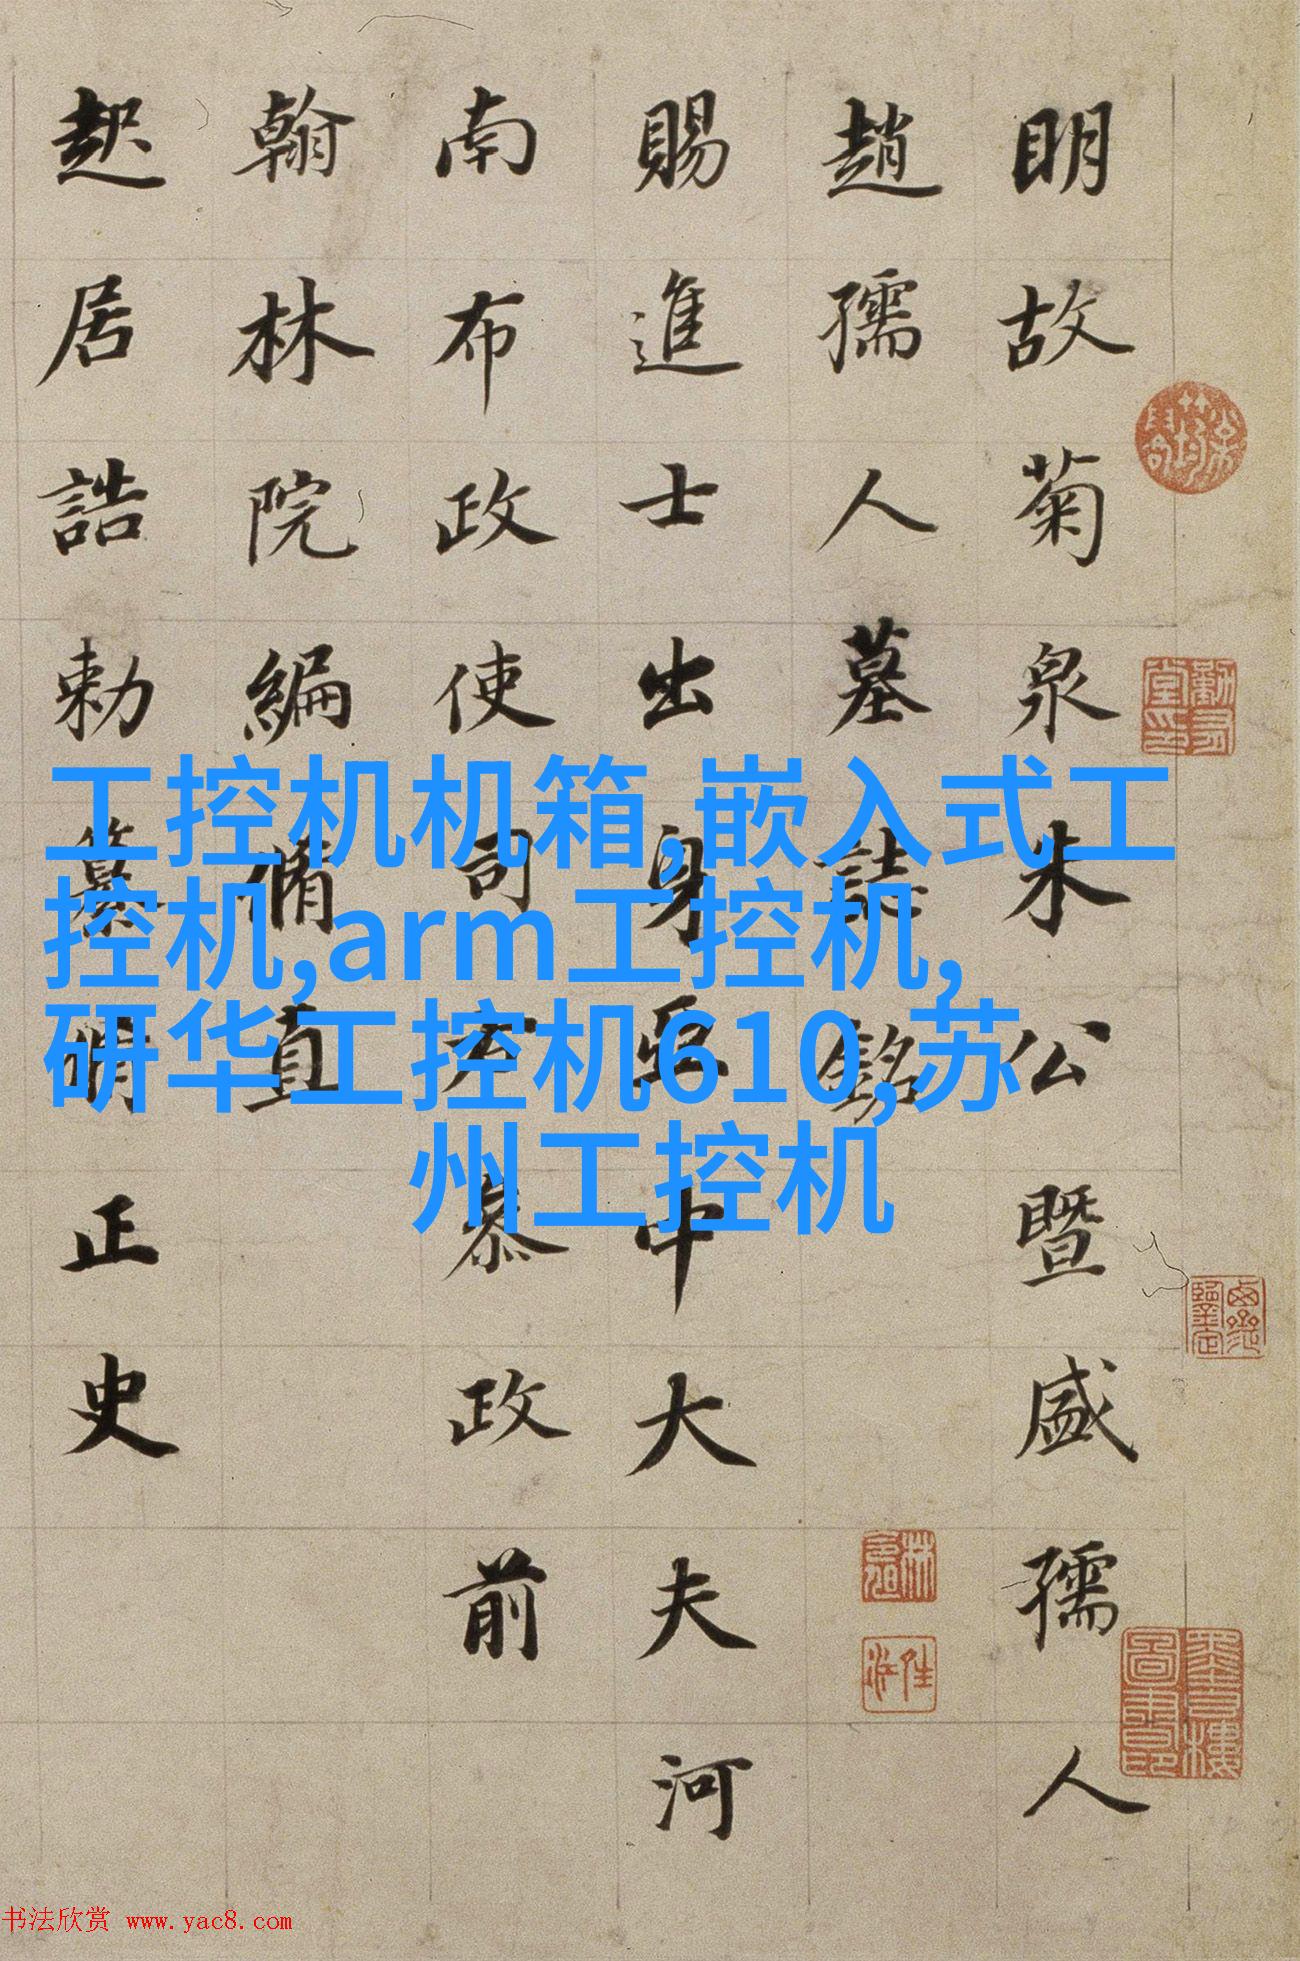 明故菊泉朱公暨盛孺人
趙孺人墓誌銘
賜進士出身亞中大夫河
南布政使司叅政前
翰林院編脩直
起居誥勅纂明正史
工控机机箱,嵌入式工
控机,arm工控机,
研华工控机610,苏
州工控机
书法欣赏 www.yac8.com